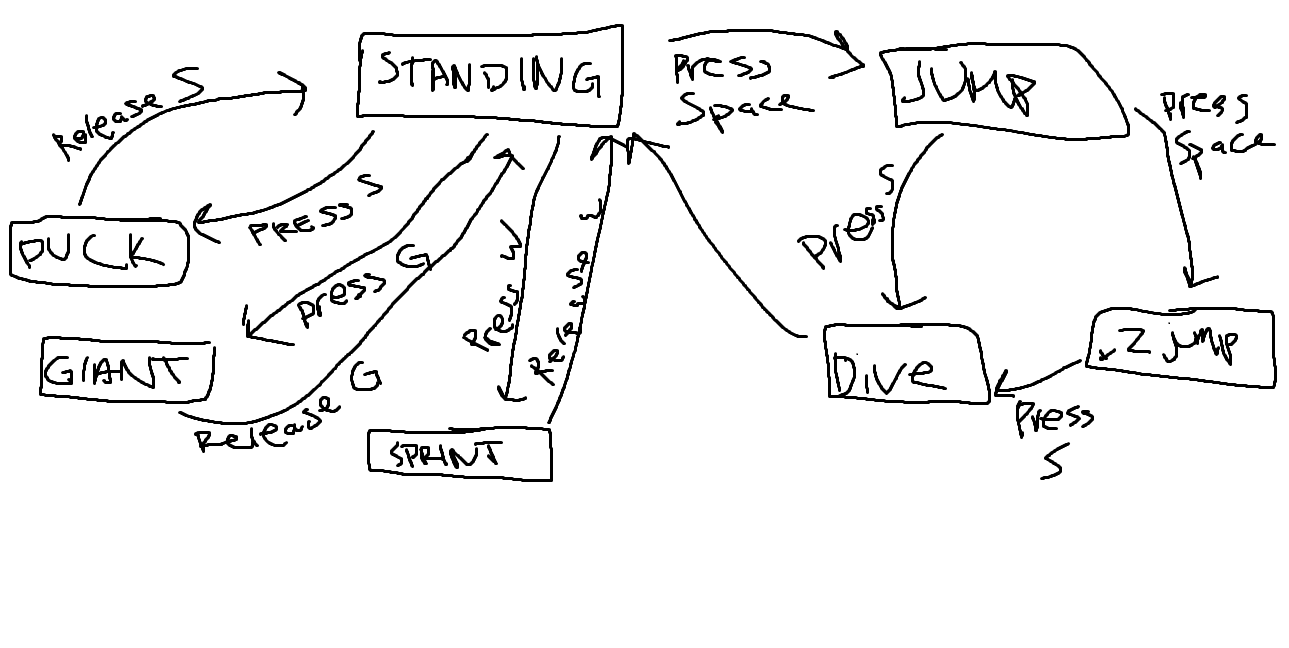 STANDING
Press
Space
JUMP
Press
Space
Release S
PRESS S
DUCK
Press G
Release G
GIANT
Press W
Release W
SPRINT
Press S
Dive
.2 jump
Press
S